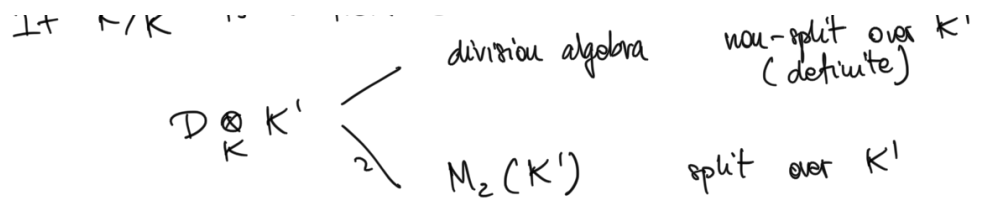 If K'/K
division algebra non-split over K'
(definite)
D ⊗ K'
K
2
M₂(K') split over K'